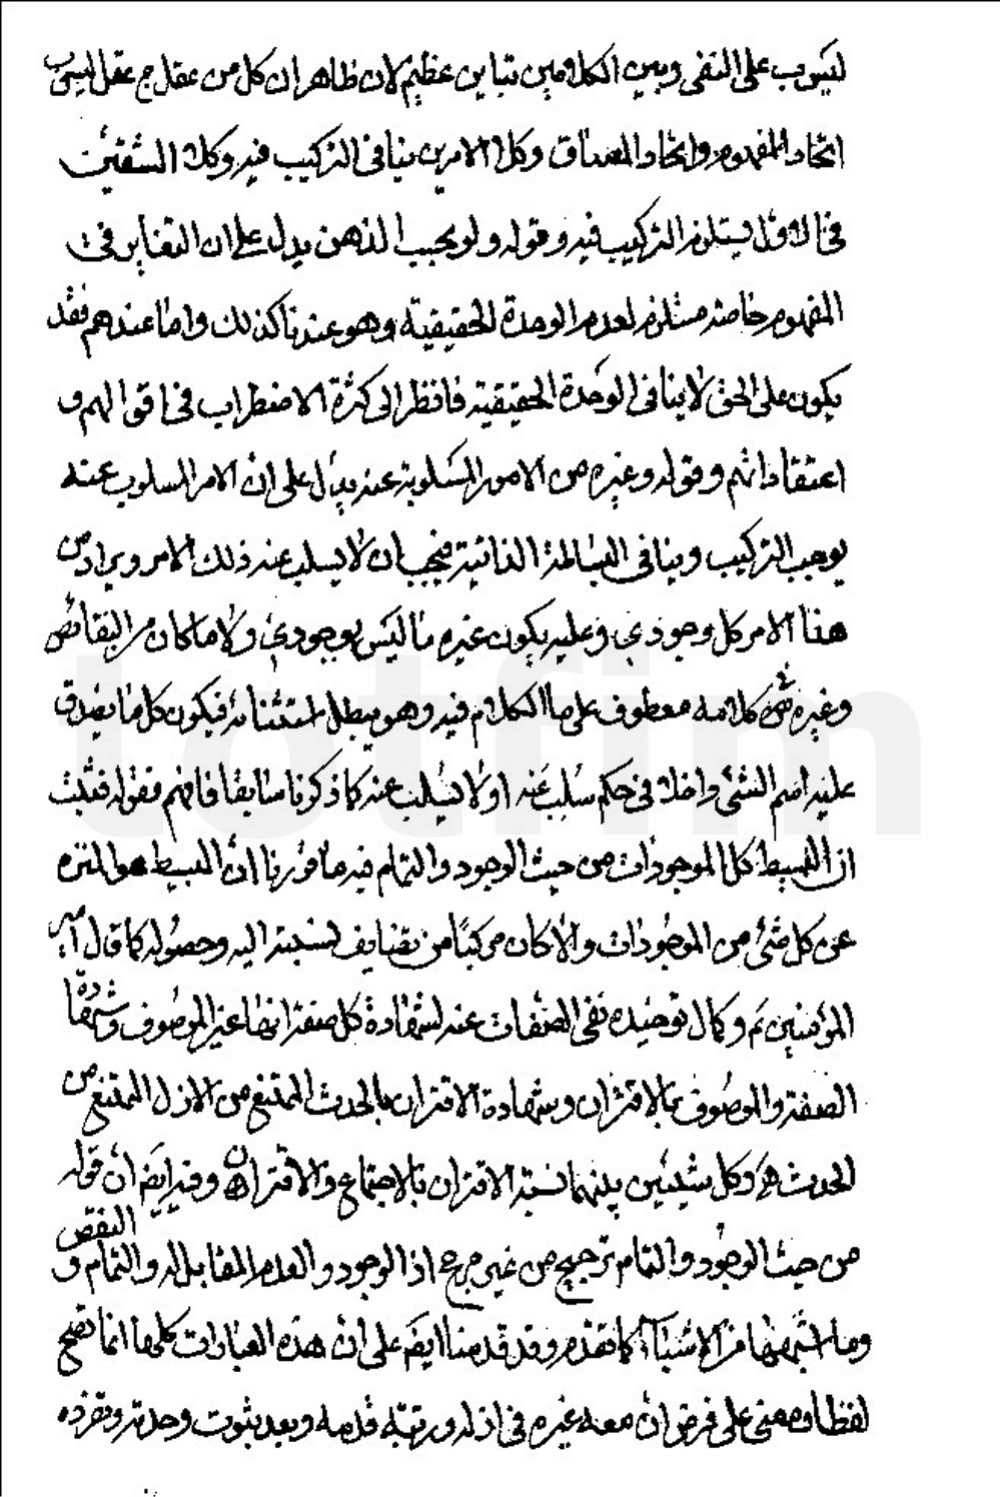 ليس ب على النفى وبين الكلامين تباين عظيم لان ظاهر ان كل من عقل ج عقل ليس ب
اتحاد المفهوم واتحاد المصداق وكلا الامرين ينافى التركيب فيه وكلا الشقين
فى الاول يستلزم التركيب فيه وقوله ولو بحسب الذهن يدل على ان التغاير فى
المفهوم خاصة مستلزم لعدم الوحدة الحقيقية وهو عندنا كذلك واما عندهم فقد
يكون على الحق لا ينافى الوحدة الحقيقية فانظر الى كثرة الاضطراب فى اقوالهم و
اعتقاداتهم وقوله وغيره من الامور المسلوبة عنه يدل على ان الامر المسلوب عنه
يوجب التركيب وينافى البساطة الذاتية فيجب ان لا يسلب عنه ذلك الامر ويراد من
هذا الامر كل وجودي وعليه يكون غيره ما ليس بوجودي والا ما كان من النقائص
وغيره فى كلامه معطوف على ما الكلام فيه وهو يبطل استثنائه فيكون كل ما يصدق
عليه اسم الشئ داخلا فى حكم سلب عنه او لا يسلب عنه كما ذكرنا سابقا فافهم فقوله فثبت
ان البسيط كل الموجودات من حيث الوجود والتمام فيه ما قررنا ان البسيط هو المنزه
عن كل شئ من الموجودات والا كان مركبا من تضايف نسبته اليه وحصوله كما قال امير
المؤمنين ع وكمال توحيده نفى الصفات عنه لشهادة كل صفة انها غير الموصوف وشهادة
الصفة والموصوف بالاقتران وشهادة الاقتران بالحدث الممتنع من الازل الممتنع من
الحدث هـ وكل شيئين بينهما نسبة الاقتران بالاجتماع والافتراق وفيه ايضا ان قوله
من حيث الوجود والتمام ترجيح من غير مرجح اذ الوجود والعدم المقابل له والتمام والنقص
وما اشبهها من الاشياء كما تقدم وقد قدمنا ايضا على ان هذه العبارات كلها انما تصح
لفظا ومعنى على فرض ان معه غيره فى ازله ورتبة قدمه وبعد ثبوت وحدته وتفرده